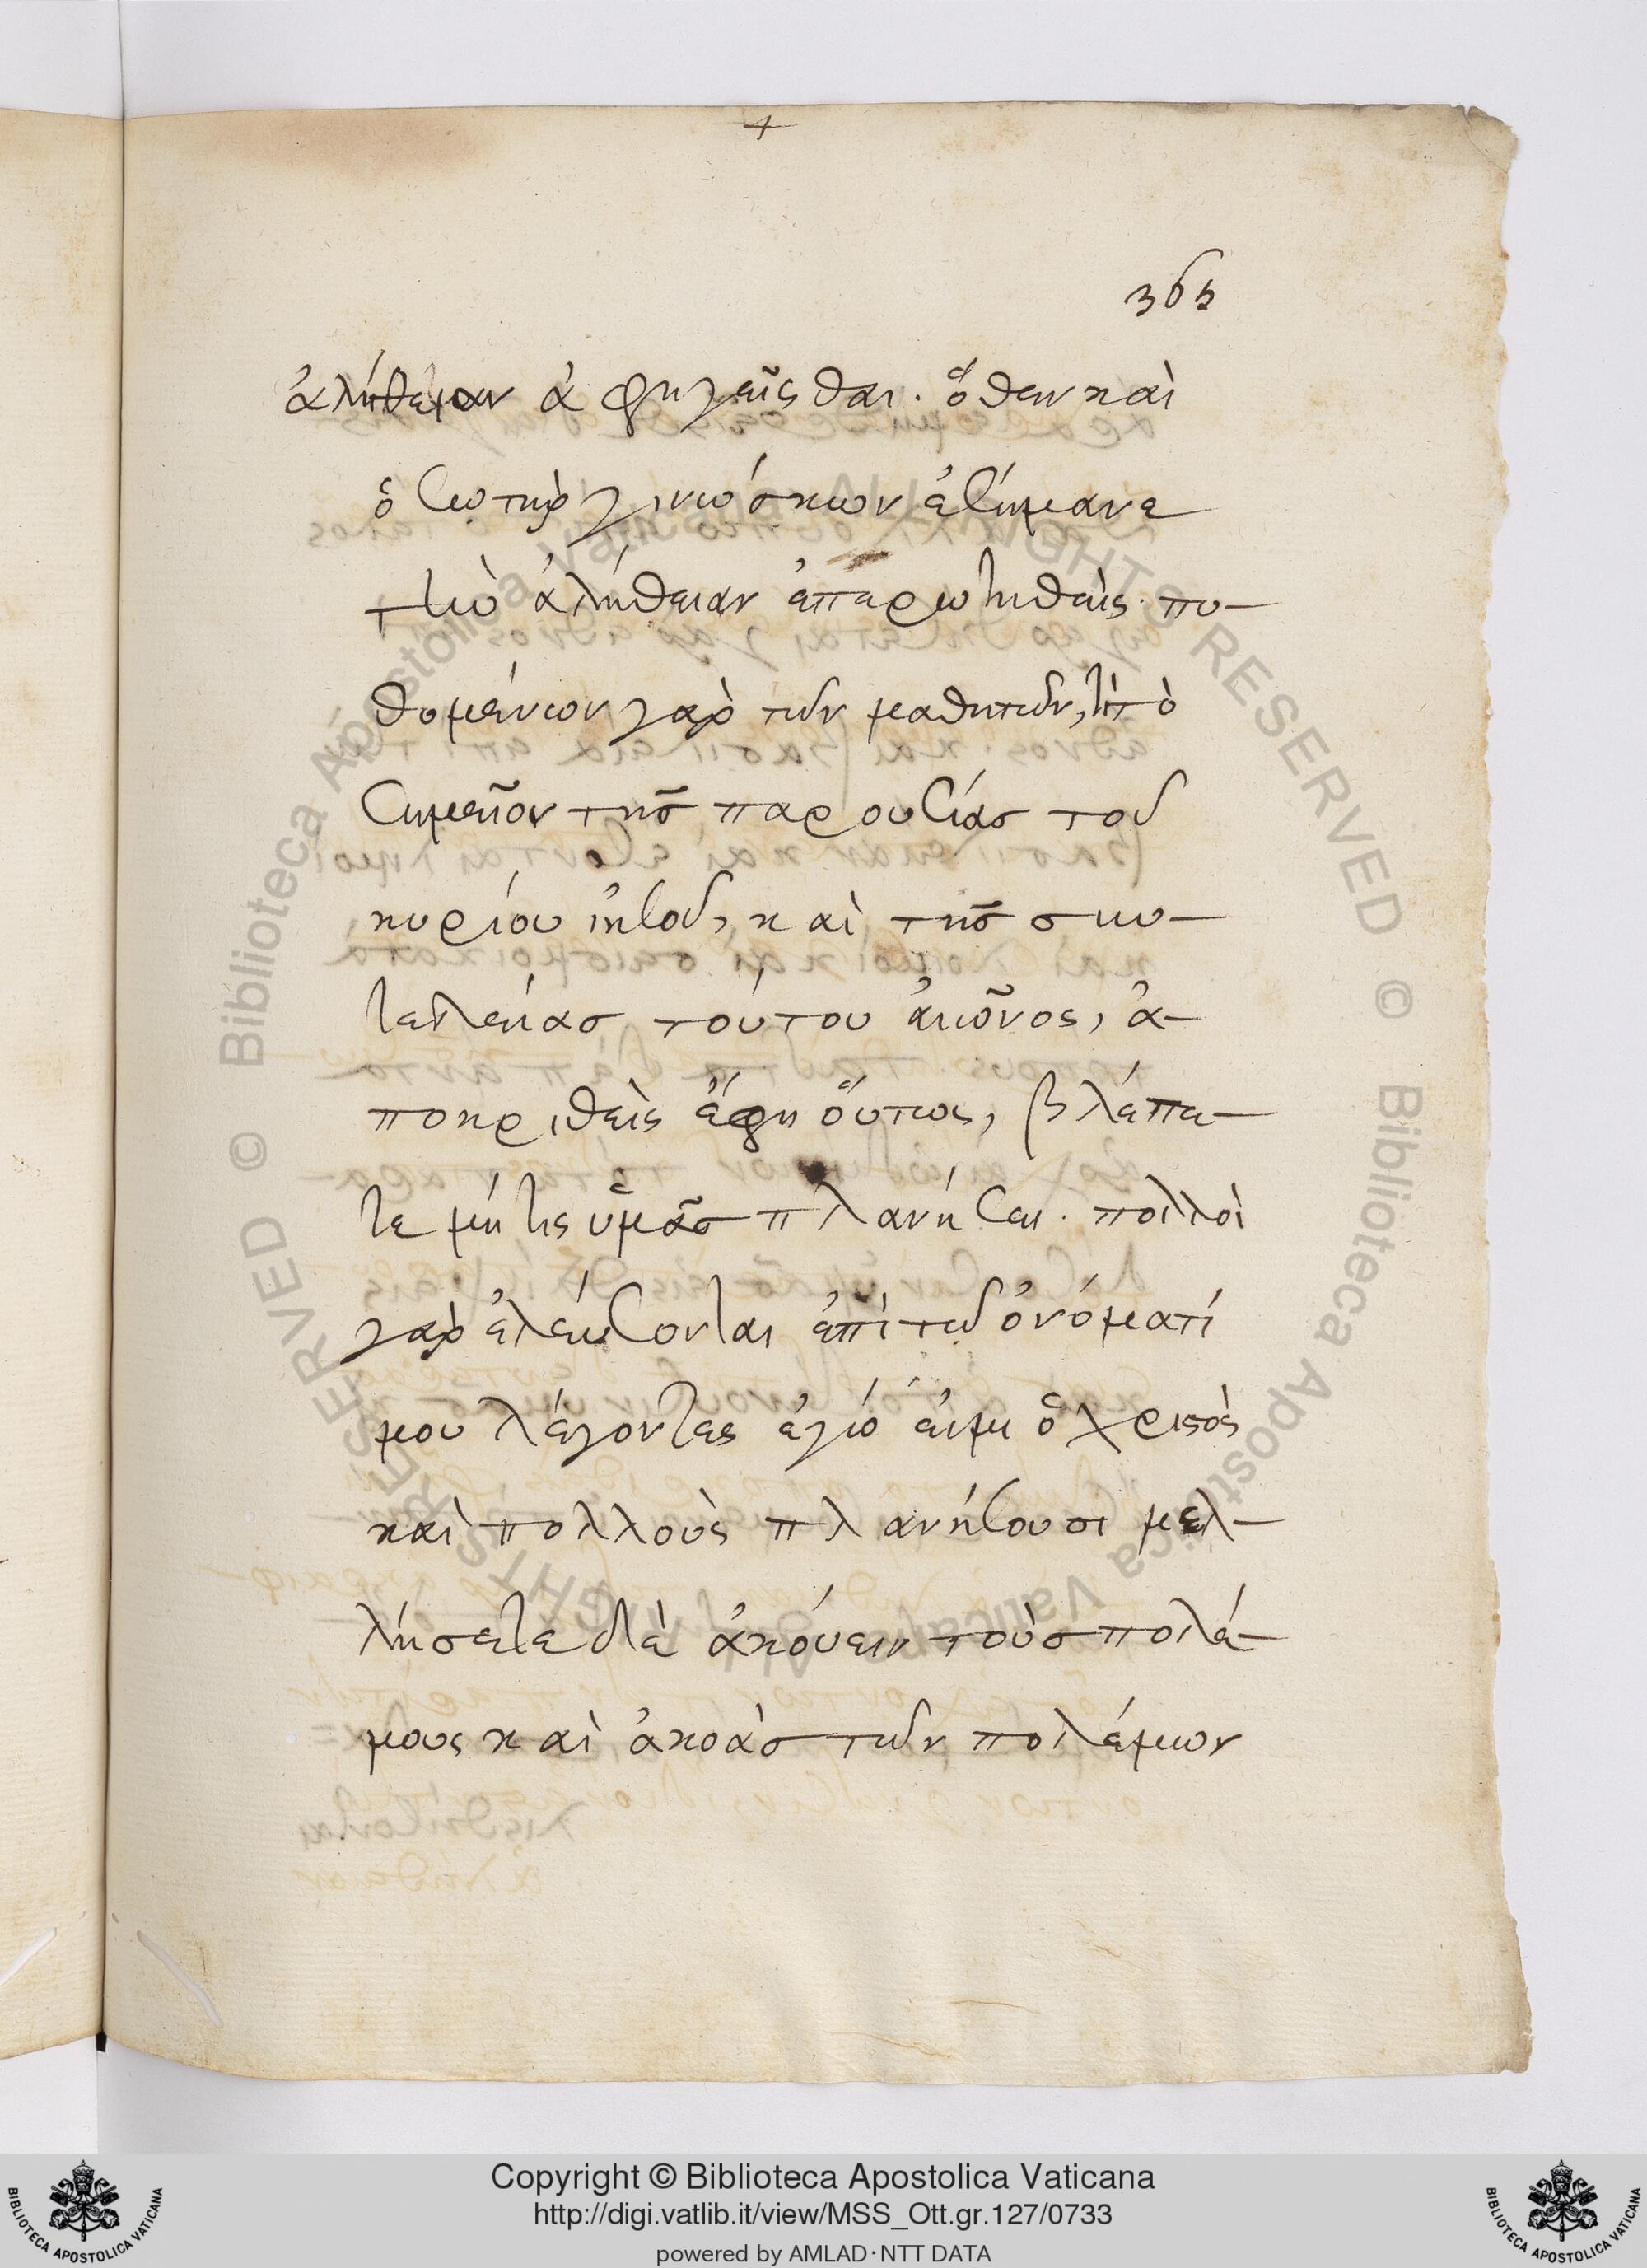 365
ἀλήθειαν ἀφηγεῖσθαι. ὅθεν καὶ
ὁ σωτὴρ γινώσκων ἐσήμανε
τὴν ἀλήθειαν ἐπερωτηθείς. πυ-
θομένων γὰρ τῶν μαθητῶν, τί τὸ
σημεῖον τῆς παρουσίας τοῦ
κυρίου ἰησοῦ, καὶ τῆς συν-
τελείας τούτου αἰῶνος, ἀ-
ποκριθεὶς ἔφη οὕτως, βλέπε-
τε μή τις ὑμᾶς πλανήσει. πολλοὶ
γὰρ ἐλεύσονται ἐπὶ τῷ ὀνόματί
μου λέγοντες ἐγώ εἰμι ὁ χριστὸς
καὶ πολλοὺς πλανήσουσι μελ-
λήσετε δὲ ἀκούειν τοὺς πολέ-
μους καὶ ἀκοὰς τῶν πολέμων
Copyright © Biblioteca Apostolica Vaticana
http://digi.vatlib.it/view/MSS_Ott.gr.127/0733
powered by AMLAD·NTT DATA
BIBLIOTECA APOSTOLICA VATICANA
BIBLIOTECA APOSTOLICA VATICANA
© Biblioteca Apostolica Vaticana ALL RIGHTS RESERVED
© Biblioteca Apostolica Vaticana ALL RIGHTS RESERVED